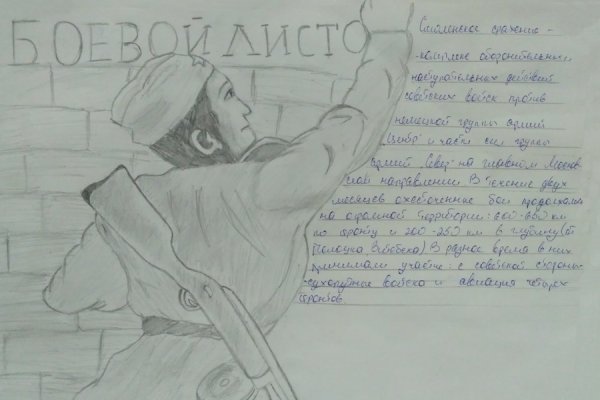 БОЕВОЙ ЛИСТО
Смоленское сражение -
-комплекс оборонительных,
наступательных действий
советских войск против
немецкой группы армий
"Центр" и части сил группы
армий "Север" на главном Москов
ском направлении. В течение двух
месяцев ожесточённые бои продолжались
на огромной территории: 600-650 км
по фронту и 200-250 км в глубину (от
Полоцка, Витебска) В разное время в них
принимали участие: с советской стороны
-сухопутные войска и авиация четырёх
фронтов